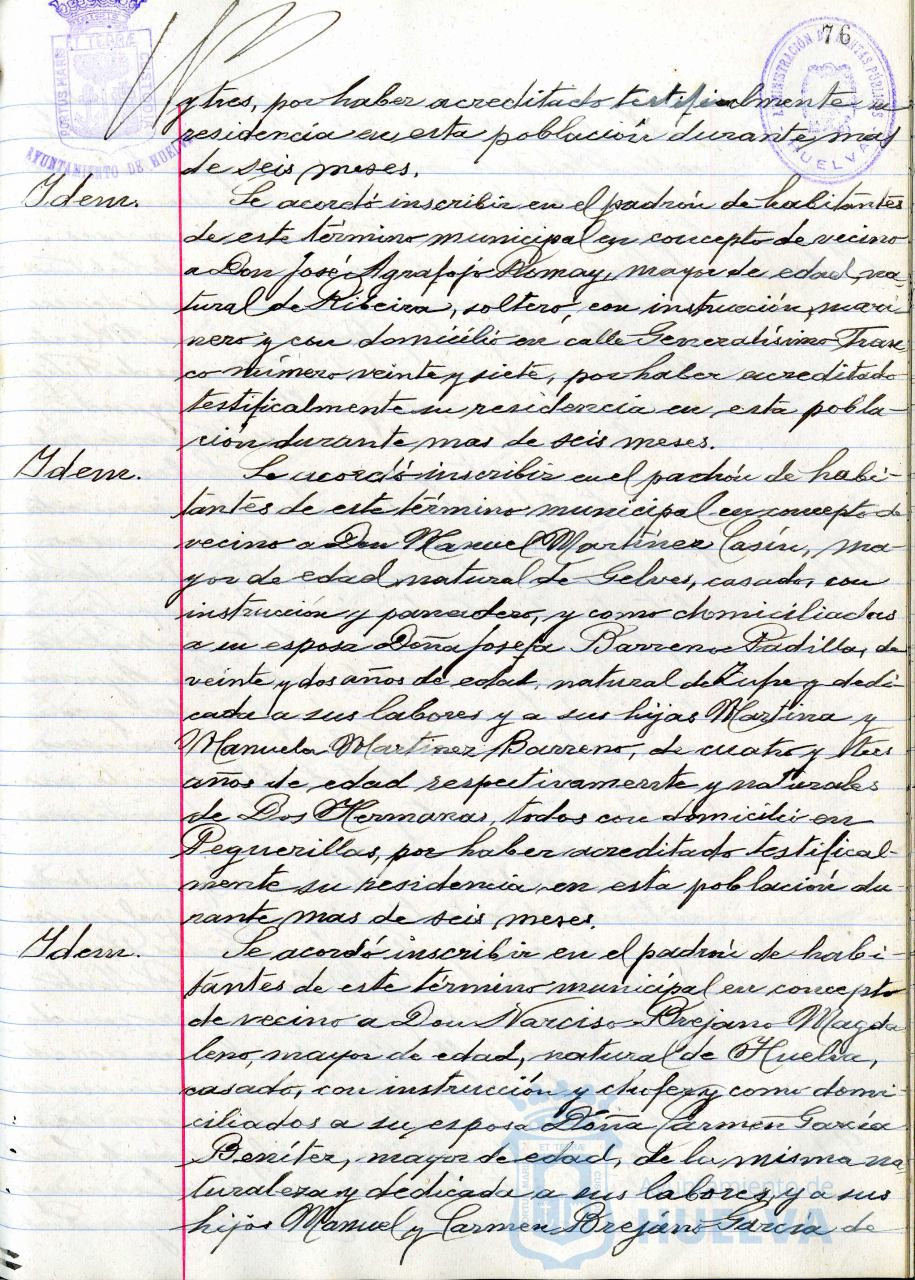 76
PORTUS MARIS ET TERRÆ CUSTODIA
AYUNTAMIENTO DE HUELVA
ADMINISTRACIÓN DE RENTAS PÚBLICAS
HUELVA
y tres, por haber acreditado testificalmente su
residencia en esta población durante mas
de seis meses.
Idem.
Se acordó inscribir en el padrón de habitantes
de este término municipal en concepto de vecino
a Don José Agrafojo Romay, mayor de edad, na-
tural de Ribeira, soltero, con instrucción, mari
nero y con domicilio en calle Generalísimo Fran
co número veinte y siete, por haber acreditado
testificalmente su residencia en esta pobla
ción durante mas de seis meses.
Idem.
Se acordó inscribir en el padrón de habi-
tantes de este término municipal en concepto de
vecino a Don Manuel Martínez Casín, ma
yor de edad, natural de Gelves, casado, con
instrucción y panadero, y como domiciliados
a su esposa Doña Josefa Barreno Padilla, de
veinte y dos años de edad, natural de y dedi
cada a sus labores y a sus hijas Martina y
Manuela Martínez Barreno, de cuatro y tres
años de edad respectivamente y naturales
de Dos Hermanas, todos con domicilio en
Peguerillas, por haber acreditado testifical-
mente su residencia en esta población du
rante mas de seis meses.
Idem.
Se acordó inscribir en el padrón de habi-
tantes de este término municipal en concepto
de vecino a Don Narciso Brejano Magda
leno, mayor de edad, natural de Huelva,
casado, con instrucción y chofer y como domi
ciliados a su esposa Doña Carmen García
Benítez, mayor de edad, de la misma na
turaleza y dedicada a sus labores y a sus
hijos Manuel y Carmen Brejano García de
Ayuntamiento de
HUELVA